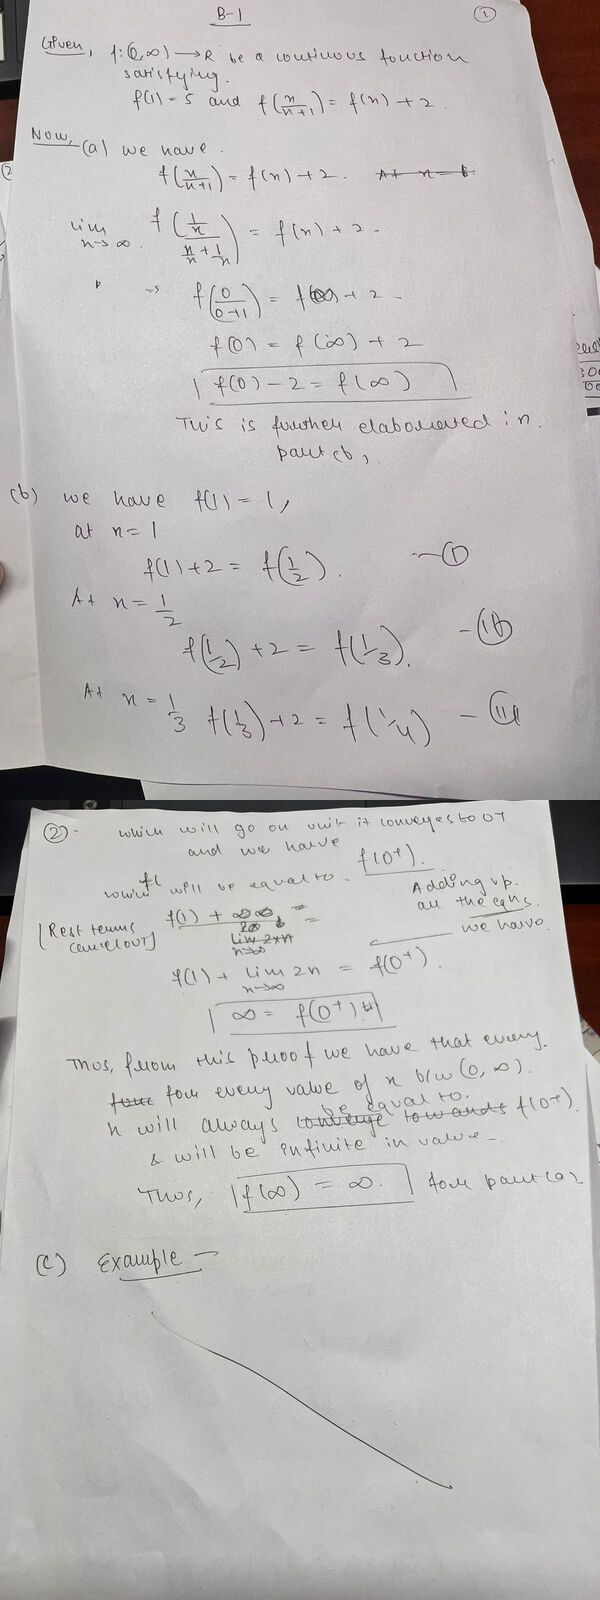 B-1
①
Given, f:(0,∞) → R be a continuous function
satisfying.
f(1) = 5 and f(n/n+1) = f(n) + 2
Now, (a) we have
f(n/n+1) = f(n) + 2. At n = 
lim n→∞ f((1/n)/(n/n + 1/n)) = f(n) + 2 -
⇒ f(0/0+1) = f(∞) + 2 -
f(0) = f(∞) + 2
f(0) - 2 = f(∞)
This is further elaborated in
part (b)
(b) we have f(1) = 1,
at n = 1
f(1) + 2 = f(1/2). - ①
At n = 1/2
f(1/2) + 2 = f(1/3). - (11)
At n = 1/3 f(1/3) + 2 = f(1/4) - (111)
②- which will go on until it converges to 0+
and we have
f(0+).
which will be equal to.
Adding up
all the eqns.
we have
[Rest terms
cancel out]
f(1) + ∞ =
lim 2×n
n→∞
f(1) + lim n→∞ 2n = f(0+).
∞ = f(0+)
Thus, from this proof we have that every
for every value of n b/w (0, ∞).
n will always converge towards be equal to. f(0+).
& will be infinite in value -
Thus, f(∞) = ∞. for part (a)
(c) Example -